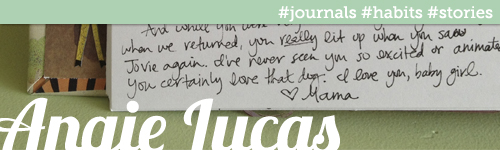 #journals #habits #stories
And while you were
when we returned, you really lit up when you saw
Jovie again. I've never seen you so excited or animate
You certainly love that dog. I love you, baby girl.
♡ Mama
Angie Lucas